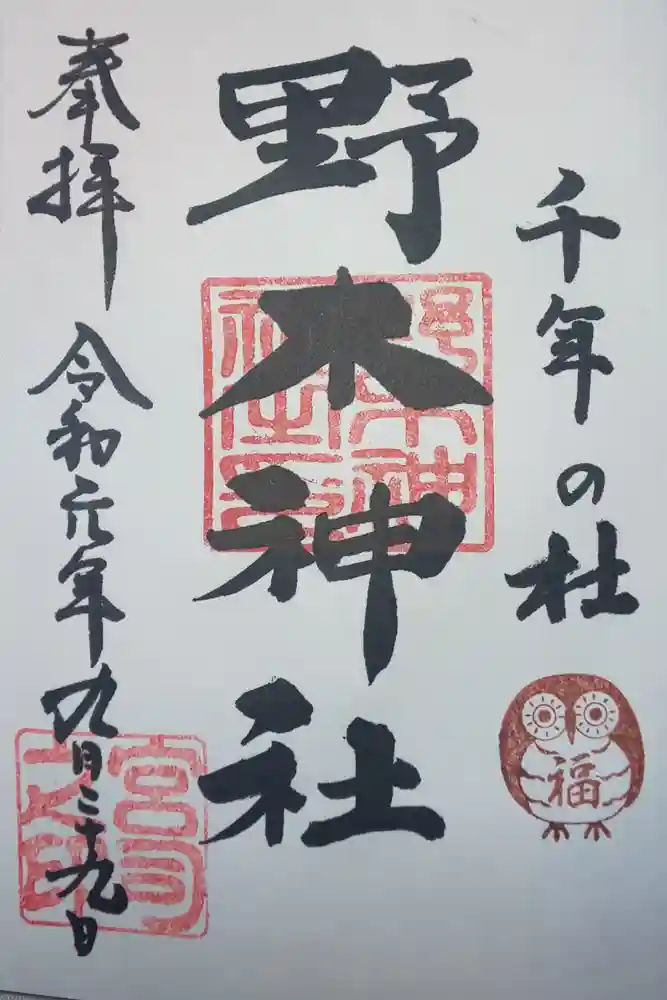 千年の杜
福
野木神社
野木神社之印
奉拝
令和元年九月二十九日
宮司之印